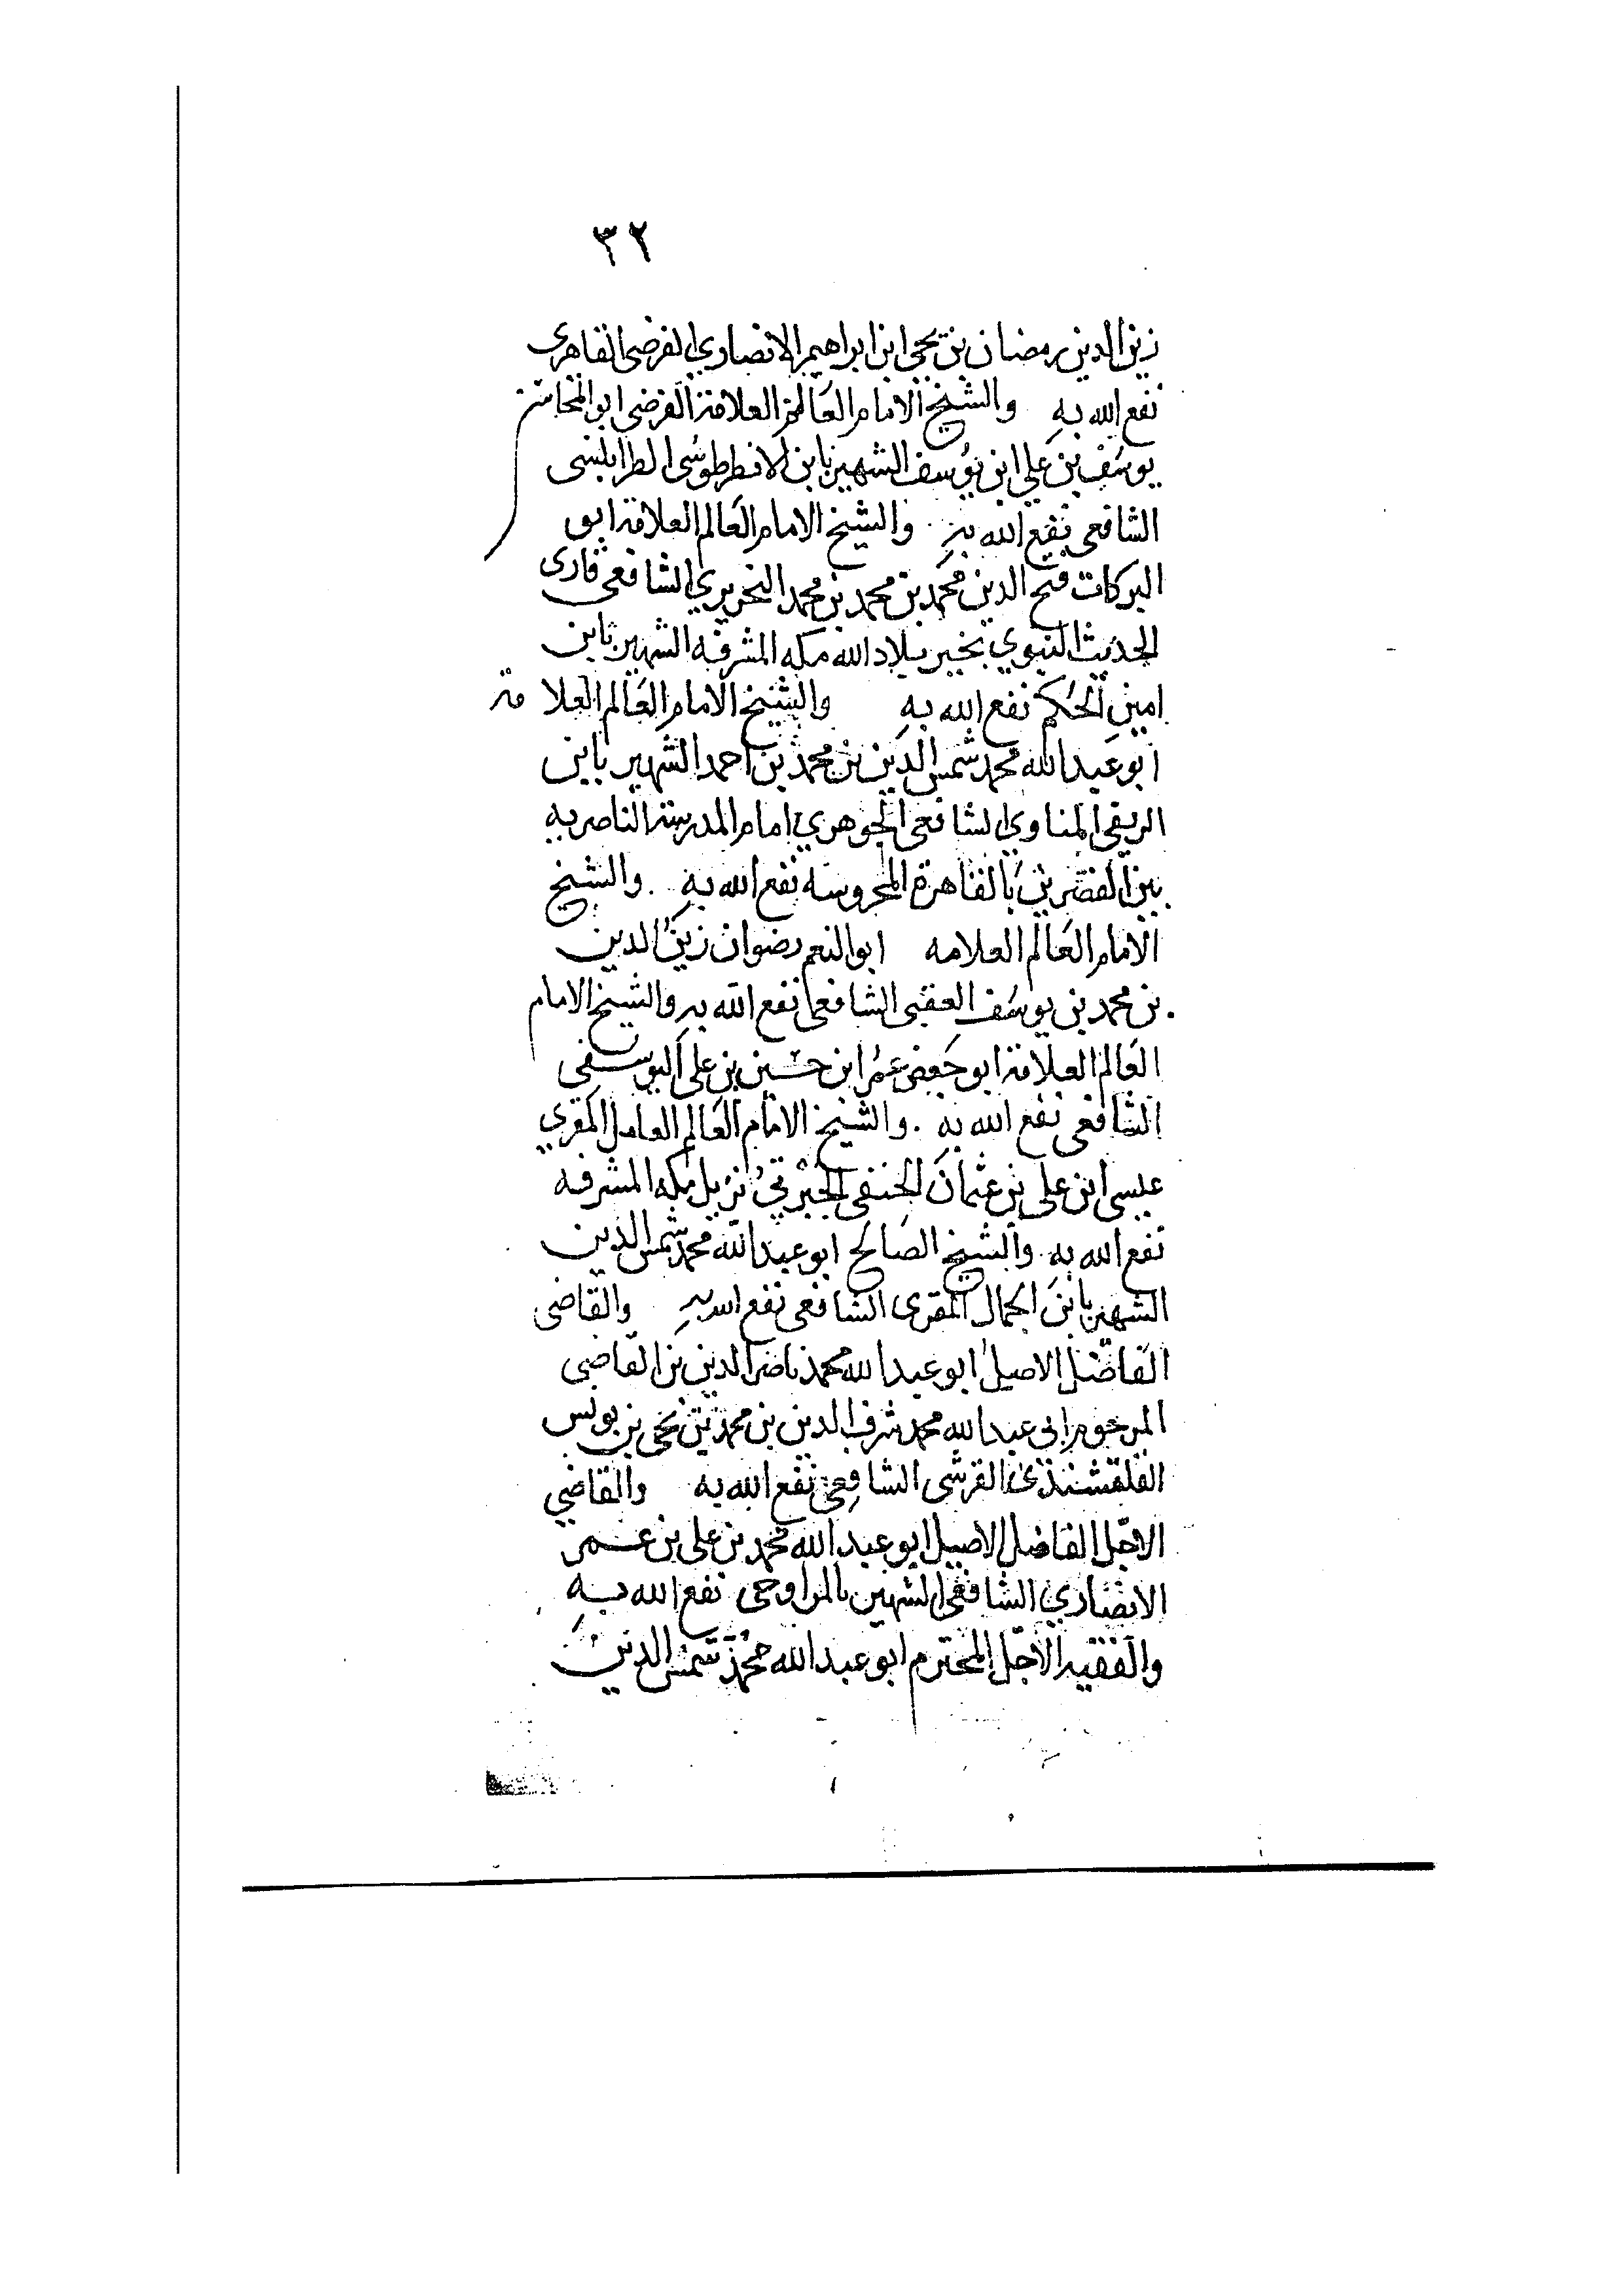 ٣٢
زين الدين رمضان بن يحيى ابن ابراهيم الانصاري الفرضي القاهرى
نفع الله به والشيخ الامام العالم العلامة الفرضي ابو المحاسن
يوسف بن علي ابن يوسف الشهير بابن الانطرطوسى الطرابلسى
الشافعي نفع الله به والشيخ الامام العالم العلامة ابو
البركات فتح الدين محمد بن محمد بن محمد النحريري الشافعي قارى
الحديث النبوي بخير بلاد الله مكه المشرفه الشهير بابن
امين الحكم نفع الله به والشيخ الامام العالم العلامة
ابو عبد الله محمد شمس الدين بن محمد بن احمد الشهير بابن
الريفي المناوي الشافعي الجوهري امام المدرسة الناصريه
بين القصرين بالقاهرة المحروسه نفع الله به . والشيخ
الامام العالم العلامه ابو النعم رضوان زين الدين
بن محمد بن يوسف العقبى الشافعي نفع الله به والشيخ الامام
العالم العلامة ابو حفص عمر ابن حسين بن على
الشافعي نفع الله به . والشيخ الامام العالم العامل المقري
عيسى ابن على بن عثمان الحنفي الجبرتي نزيل مكه المشرفه
نفع الله به والشيخ الصالح ابو عبد الله محمد شمس الدين
الشهير بابن الجمال المقرى الشافعي نفع الله به والقاضى
الفاضل الاصيل ابو عبد الله محمد ناصر الدين بن القاضي
المرحوم ابي عبد الله محمد شرف الدين بن محمد بن يحيى بن يونس
القلقشندى القرشى الشافعي نفع الله به والقاضي
الاجل الفاضل الاصيل ابو عبد الله محمد بن على بن عمر
الانصاري الشافعي الشهير بالمراوحى نفع الله به
والفقيه الاجل المحترم ابو عبد الله محمد شمس الدين